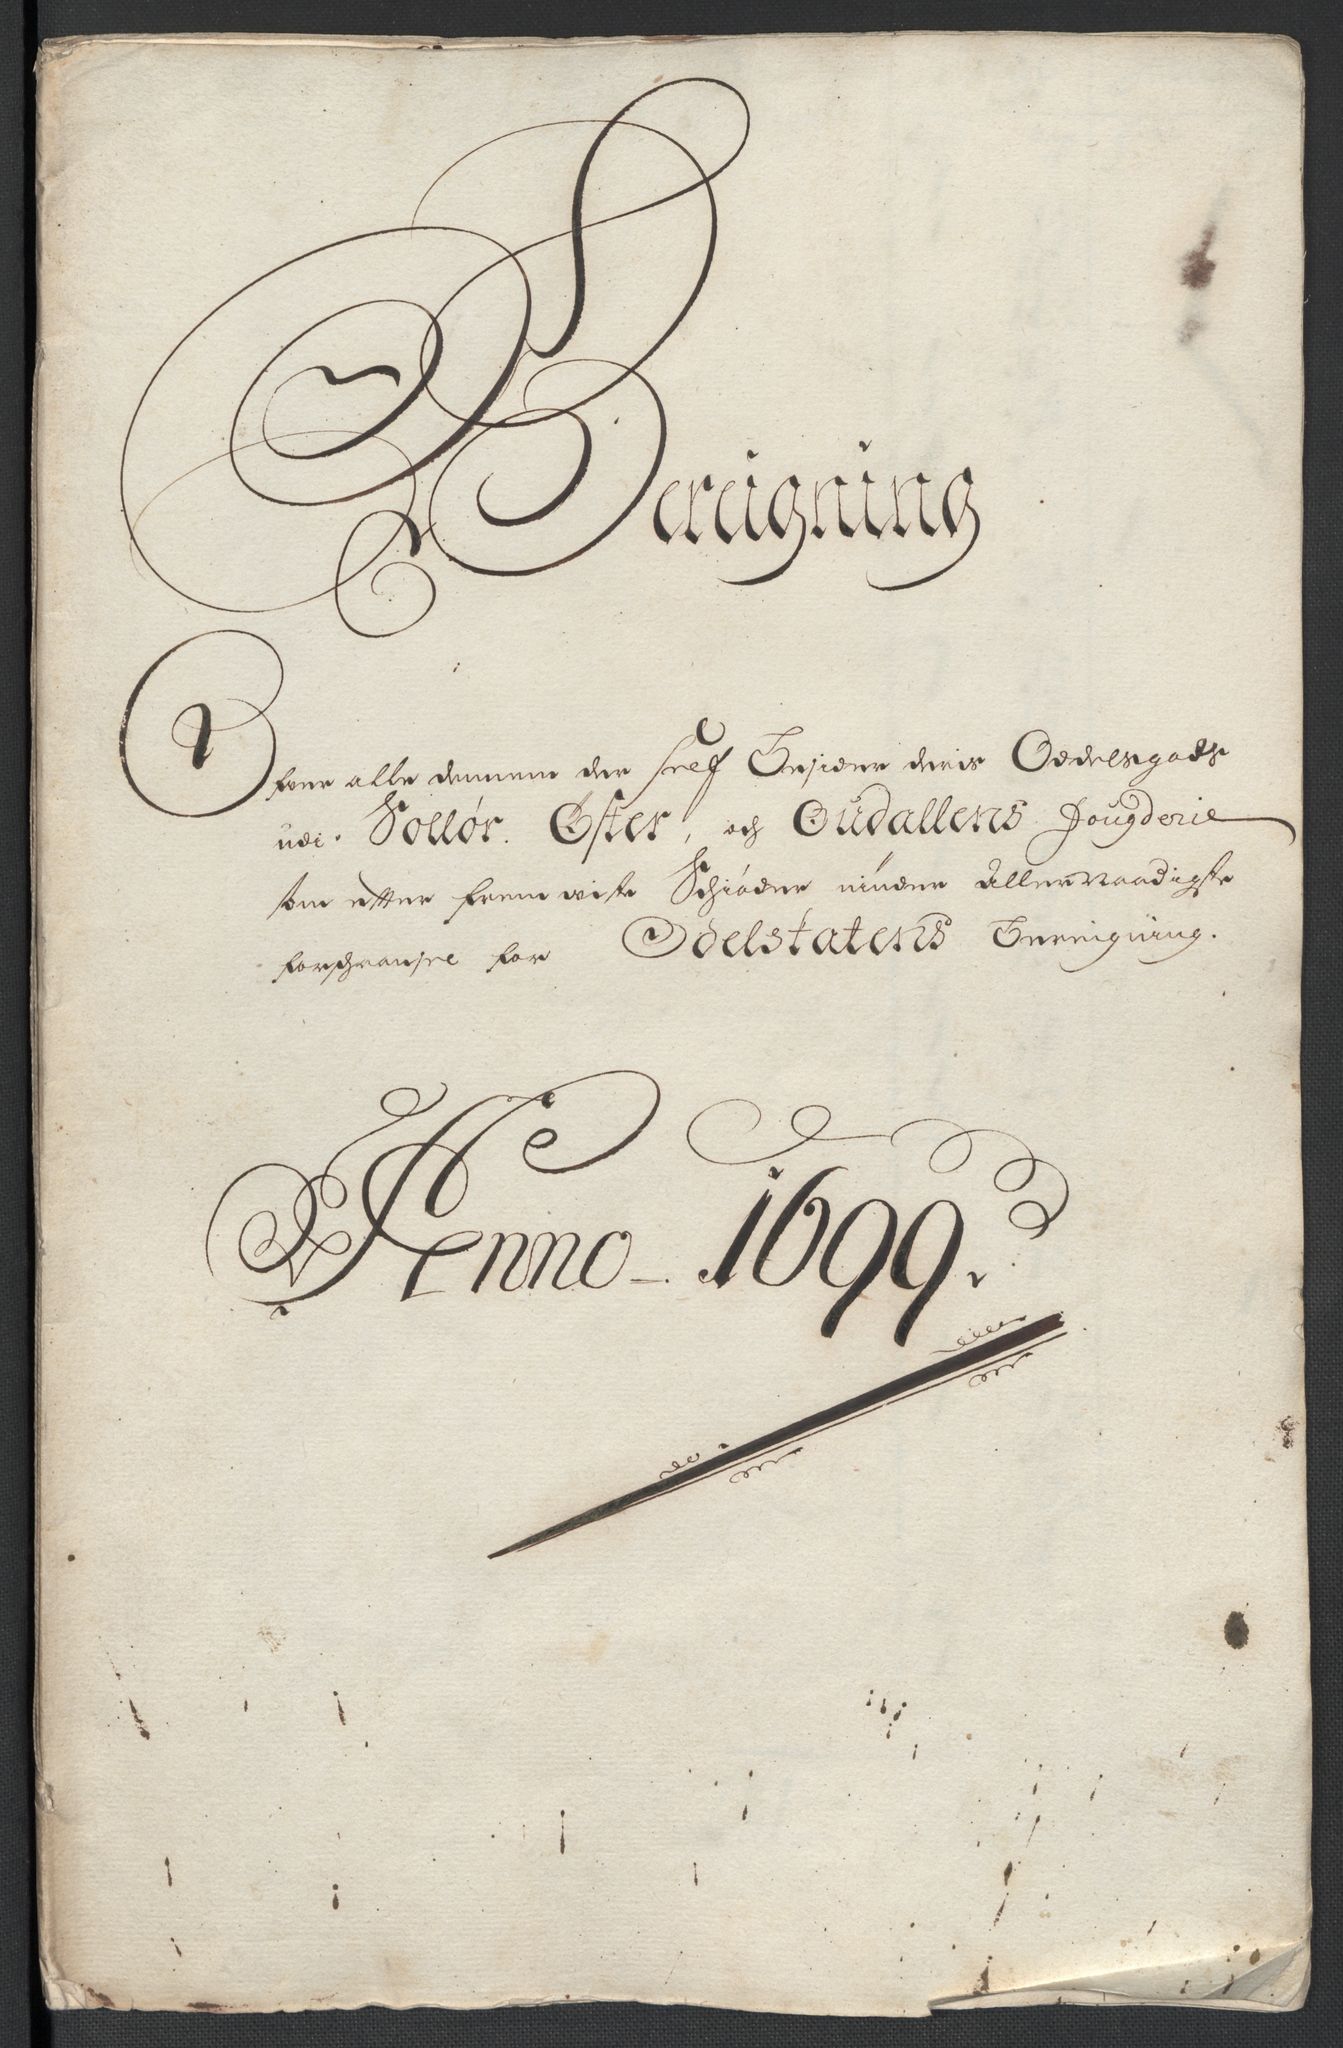 Bereigning
Ofver alle dennem der self Besider deris Oddelsgods
udi. Sollør. Øster, och Oudallens Fougderie
som effter frem viste Schiøder niuder Allernaadigste
forschaansel for Odelskatens Bereigning.
Anno - 1699.